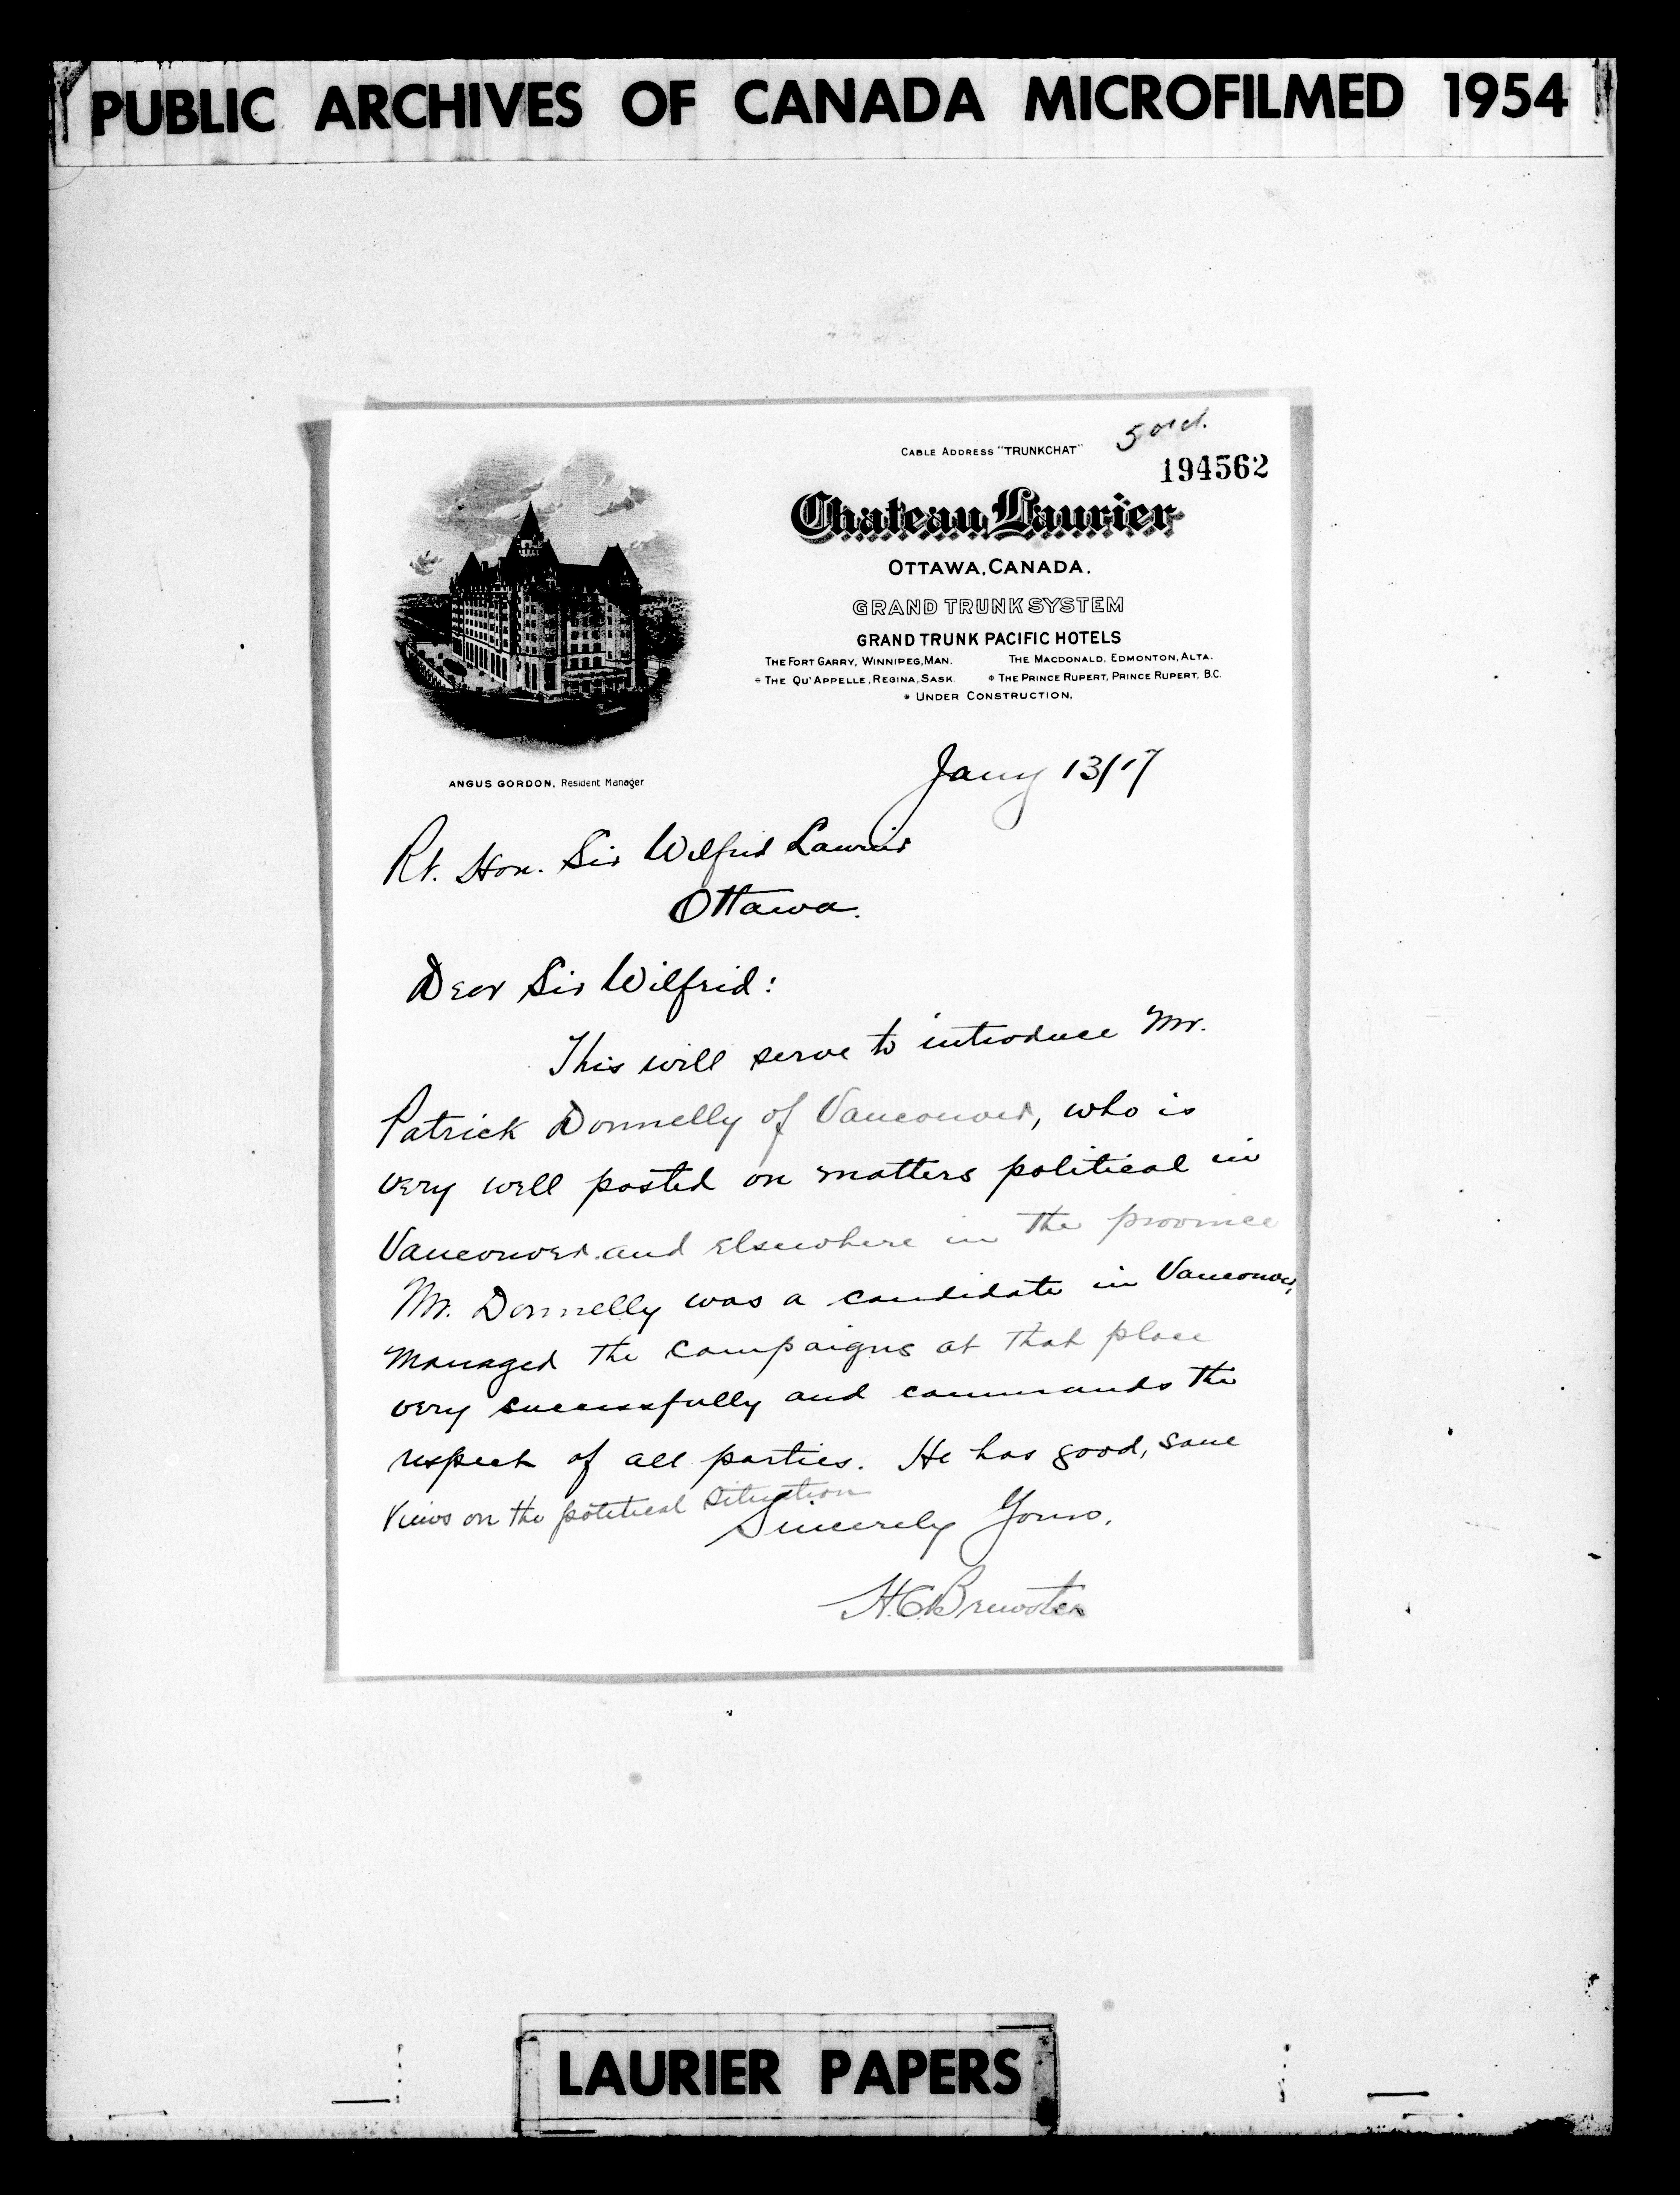 PUBLIC ARCHIVES OF CANADA MICROFILMED 1954
CABLE ADDRESS "TRUNKCHAT"
194562
Chateau Laurier
OTTAWA, CANADA.
GRAND TRUNK SYSTEM
GRAND TRUNK PACIFIC HOTELS
THE FORT GARRY, WINNIPEG, MAN. THE MACDONALD, EDMONTON, ALTA.
* THE QU'APPELLE, REGINA, SASK. * THE PRINCE RUPERT, PRINCE RUPERT, B.C.
* UNDER CONSTRUCTION.
ANGUS GORDON, Resident Manager
Jany 13/17
Rt. Hon. Sir Wilfrid Laurier
Ottawa.
Dear Sir Wilfrid:
This will serve to introduce Mr.
Patrick Donnelly of Vancouver, who is
very well posted on matters political in
Vancouver and elsewhere in the province
Mr. Donnelly was a candidate in Vancouver,
managed the campaigns at that place
very successfully and commands the
respect of all parties. He has good, sane
views on the political situation
Sincerely Yours,
H.C. Brewster
LAURIER PAPERS